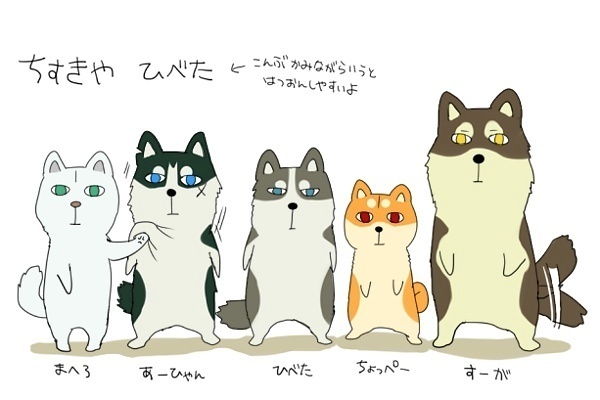 ちすきゃ ひべた ← こんぶかみながらいうと
はつおんしやすいよ
まへろ
あーひゃん
ひべた
ちょっぺー
すーが